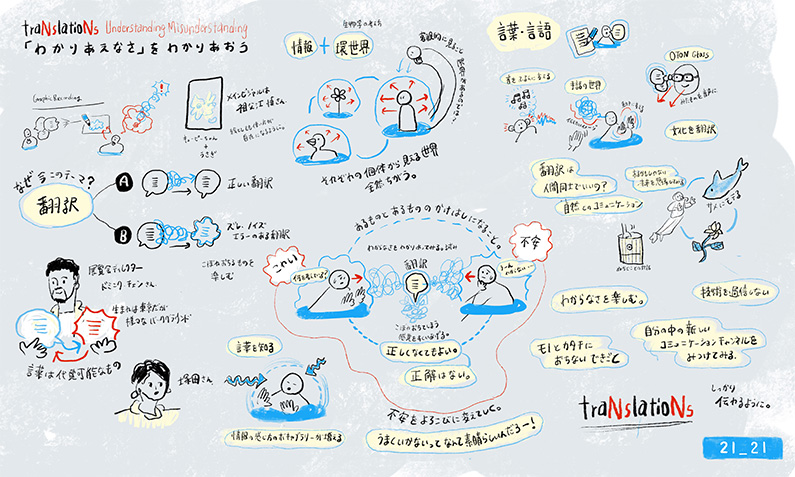 traNslatioNs Understanding Misunderstanding
「わかりあえなさ」をわかりあおう
Graphic Recording
メインビジュアルは
祖父江慎さん
うさぎ
なぜ今このテーマ?
翻訳
A
正しい翻訳
B
ズレ、ノイズ
エラーのある翻訳
こぼれおちるものを
楽しむ
展覧会ディレクター
ドミニク・チェンさん
生まれは東京だが
様々なバックグラウンド
言葉は代替可能なもの
塚田さん
言葉を知る
情報の感じ方のボキャブラリーが増える
情報
+
環世界
それぞれの個体から見る世界
全然ちがう。
あるものとあるもののかけはしになること。
わからなさをわかりあってみる試み
こわい
不安
翻訳
こぼれおちてしまう
正しくなくてもよい。
正解はない。
不安をよろこびに変えていく。
うまくいかないってなんて素晴らしいんだろー!
言葉・言語
手話の世界
DTON GLASS
文化を翻訳
翻訳は
人間同士でいいの?
自然とのコミュニケーション
サメにモテる
わからなさを楽しむ。
技術を過信しない
モノとカタチに
おちないできごと
自分の中の新しい
コミュニケーションチャンネルを
みつけてみる。
traNslatioNs
しっかり
伝わるように。
21_21